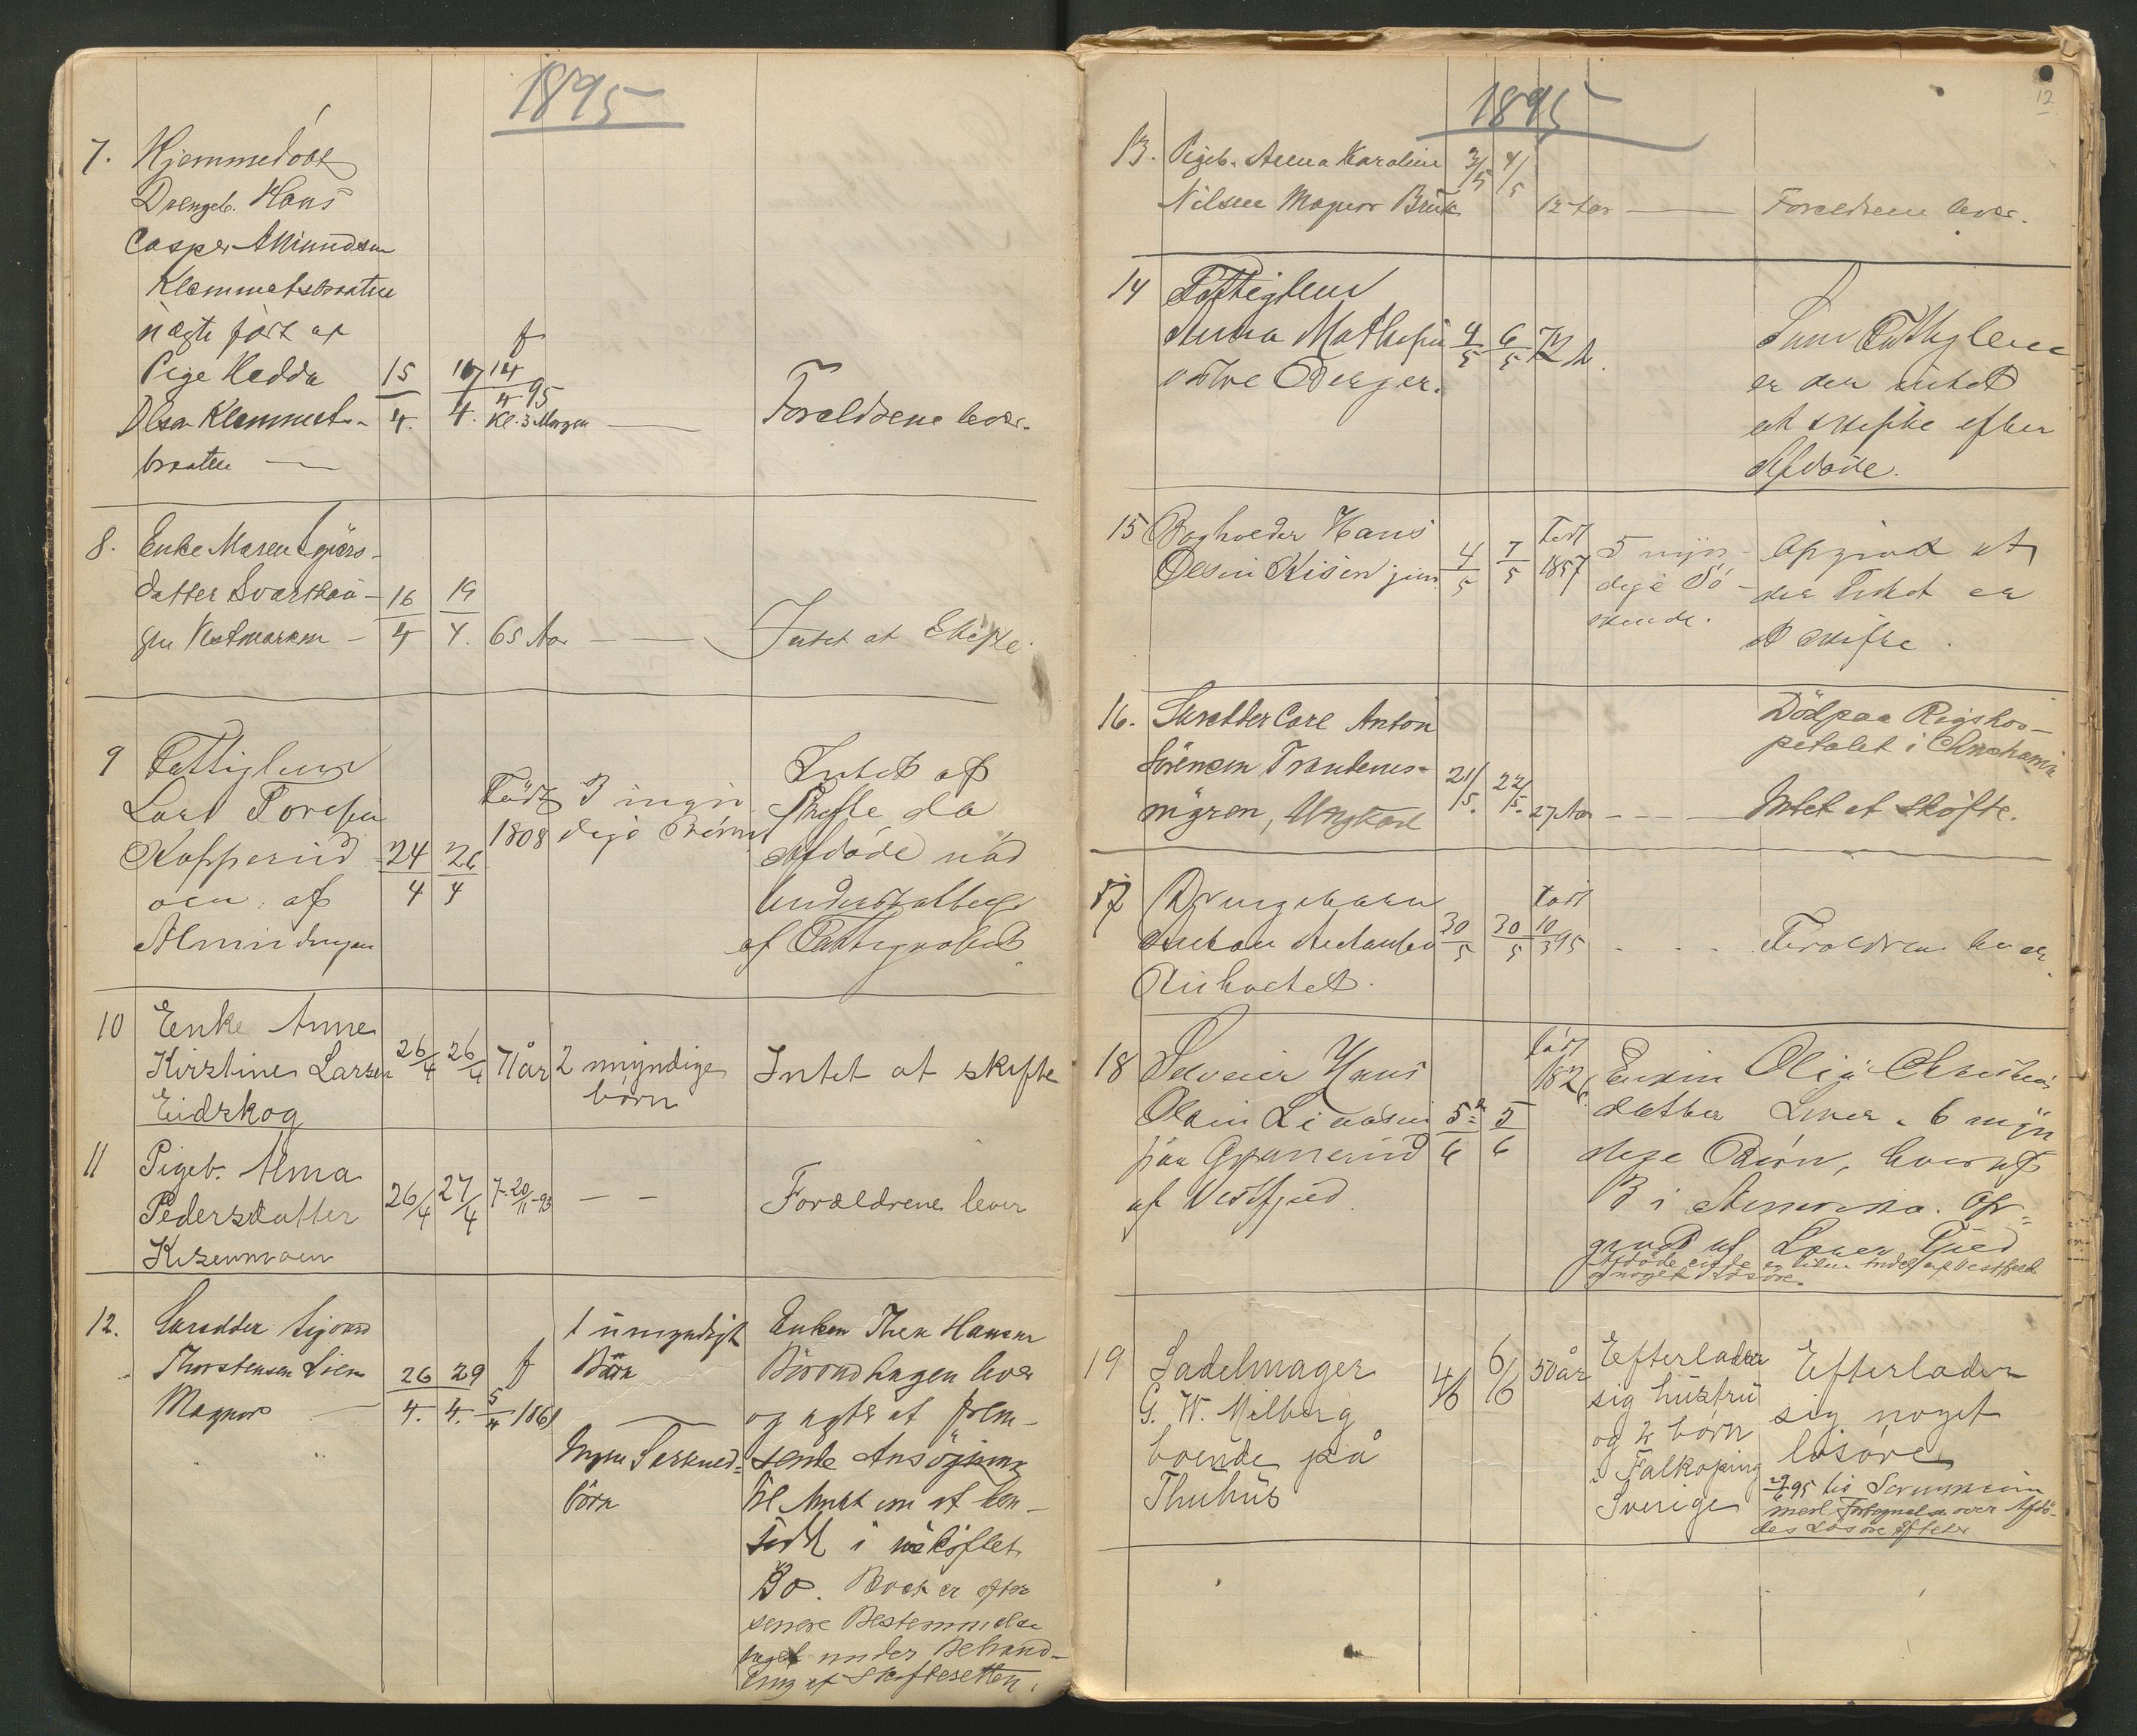 1895
7. Hjemmedöbt
Drengeb. Hans
Casper Amundsen
Klemmetsbraaten
uægte født af
Pige Hedda
Olsen Klemmets-
braaten —
15/4. 17/4. f 14/4 95
Kl. 3 Morgen —
Forældrene lever.
8. Enke Maren
datter Svarthau-
gen Vestmarken -
16/4 19/4. 65 Aar — —
Intet at Skifte.
9 Fattiglem
Lars Toresen
Kopperud
af
Almindingen
24/4 26/4
Född
1808
3 myn
dige Börn
Intet at
Skifte da
Afdöde nöd
Understöttelse
af Fattigvæsenet.
10 Enke Anne
Kirstine Larsen
Eidskog
26/4 26/4 71 år
2 myndige
börn
Intet at skifte
11 Pigeb. Alma
Pedersdatter
Kisenmoen
26/4 27/4 7-20/11-93 — —
Forældrene lever
12. Skrædder Sigvard
Thorstensen Lien
Magnor —
26/4. 29/4. f 5/4 1861
1 umyndigt
Barn
Ingen Særkuld-
börn
Enken Thea Hansen
lever
og agter at frem-
sende Ansögning
til Amtet om at hen-
sidde i uskiftet
Bo. Boet er efter
senere Bestemmelse
taget under Behand-
ling af Skifteretten.
12
1895
13. Pigeb. Anna Karoline
Nilsen Magnor Bruk
3/5 4/5 12 Aar —
Forældrene lever.
14 Fattiglem
Anna Mathesen
östre Öierjer.
4/5 6/5 72 A.
Som Fattiglem
er der intet
at skifte efter
Afdöde.
15 Bogholder Hans
Olsen Kisen jun.
4/5 7/5 Född
1857
5 myn-
dige Sö-
skende.
Opgivet at
der Intet er
at skifte.
16. Skrædder Carl Anton
Sörensen
Ungkarl
21/5. 22/5. 27 Aar - - -
Död paa Rigshos-
pitalet i Christiania
Intet at skifte.
17 Drengebarn
Anton Antonsen
30/5 30/5 Född
10/3 95 . . .
Forældrene lever.
18 Selveier Hans
Olsen Liaasen
fra Grannerud
af Vestfjed.
5/6 5/6 född
1826.
Enken Olia Christians
datter Lever. 6 myn
dige Börn, hvoraf
3 i Amerika. Op-
givet af
Afdöde eiede en liden Andel af Vestfjed
og noget Lösöre.
19 Sadelmager
G. W. Milberg
boende på
Thuhus
4/6 6/6 50 år
Efterlader
sig hustru
og 2 börn
i Falköping
Sverige
Efterlader
sig noget
lösöre
95 til Sorenskriveren
med Fortegnelse over Afdö-
des Lösöre Efterl.